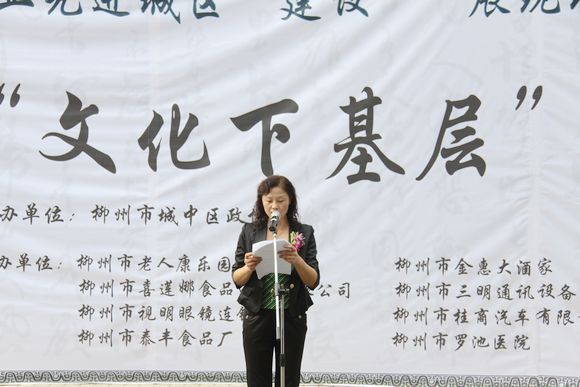 先进城区 建设 展统
“文化下基层”
办单位：柳州市城中区政
办单位：柳州市老人康乐园
柳州市喜莲娜食品 公司
柳州市视明眼镜连锁
柳州市泰丰食品厂
柳州市金惠大酒家
柳州市三明通讯设备
柳州市桂商汽车有限
柳州市罗池医院